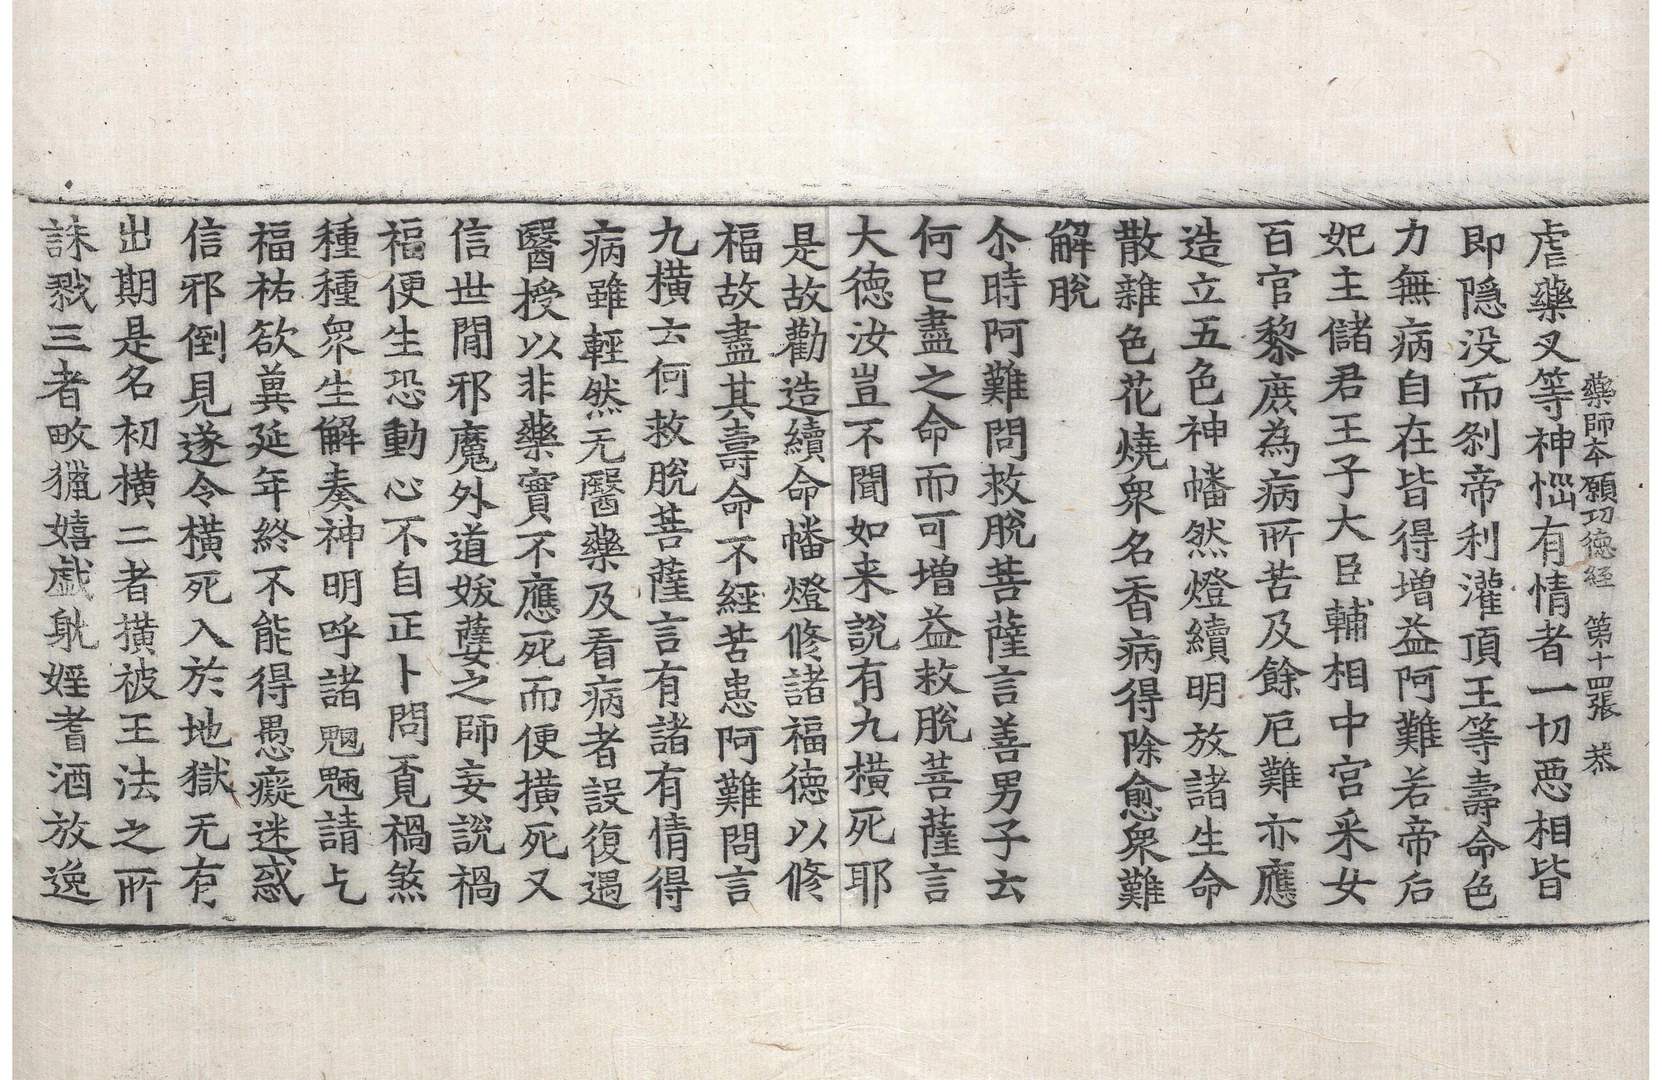 藥師本願功德經 第十四張 恭
虐藥叉等神惱有情者一切惡相皆
即隱没而刹帝利灌頂王等壽命色
力無病自在皆得增益阿難若帝后
妃主儲君王子大臣輔相中宮采女
百官黎庶為病所苦及餘厄難亦應
造立五色神幡然燈續明放諸生命
散雜色花燒衆名香病得除愈衆難
解脫
尒時阿難問救脫菩薩言善男子云
何已盡之命而可增益救脫菩薩言
大德汝豈不聞如来說有九横死耶
是故勸造續命幡燈修諸福德以修
福故盡其壽命不經苦患阿難問言
九横云何救脫菩薩言有諸有情得
病雖輕然无醫藥及看病者設復遇
醫授以非藥實不應死而便横死又
信世閒邪魔外道妖㜸之師妄說禍
福便生恐動心不自正卜問覓禍煞
種種衆生解奏神明呼諸魍魎請乞
福祐欲兾延年終不能得愚癡迷惑
信邪倒見遂令横死入於地獄无有
出期是名初横二者横被王法之所
誅戮三者畋獵嬉戲躭婬耆酒放逸